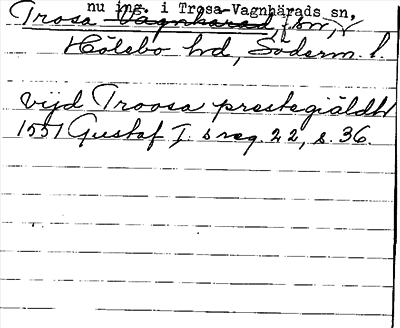 nu ing. i Trosa-Vagnhärads sn,
Trosa Vagnhärad, f. sn, v
Hölebo hd, Söderm. l.
vijd Troosa prestegiäldh
1551 Gustaf I:s reg. 22, s. 36.